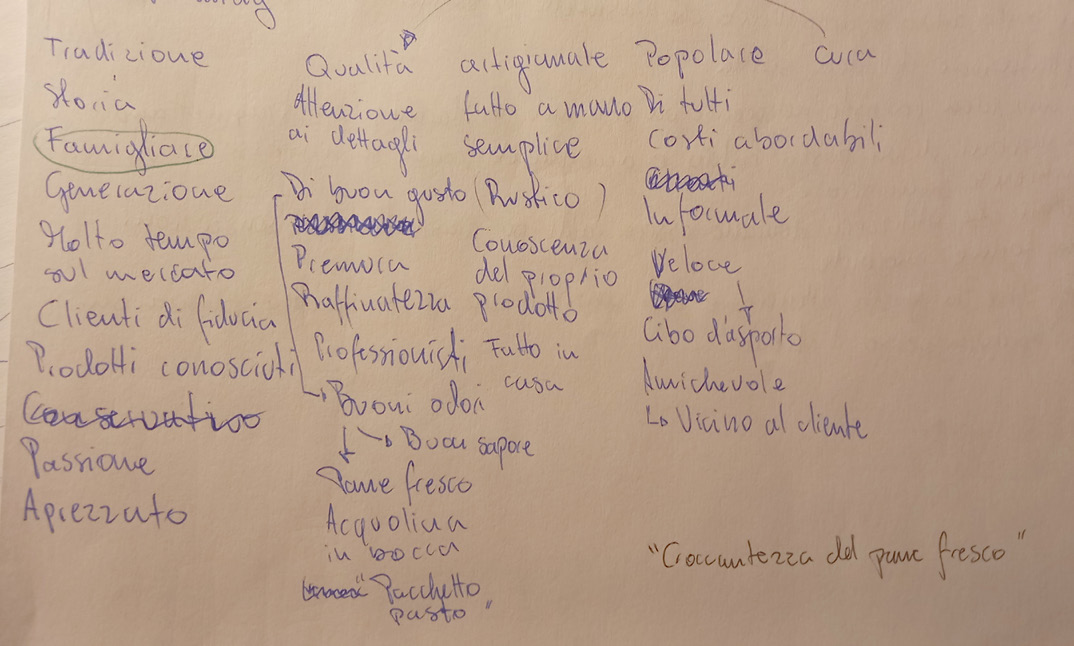 Tradizione
Storia
Famigliare
Generazione
Molto tempo
sul mercato
Clienti di fiducia
Prodotti conosciuti
Conservativo
Passione
Aprezzato
Qualità
Attenzione
ai dettagli
Di buon gusto (Rustico)
Premura
Raffinatezza
Professionisti
Buoni odori
Buon sapore
Pane fresco
Acquolina
in bocca
"Pacchetto
pasto"
artigianale
fatto a mano
semplice
Conoscenza
del proprio
prodotto
Fatto in
casa
Popolare
Di tutti
costi abordabili
Informale
Veloce
Cibo d'asporto
Amichevole
Vicino al cliente
Cura
"Croccantezza del pane fresco"